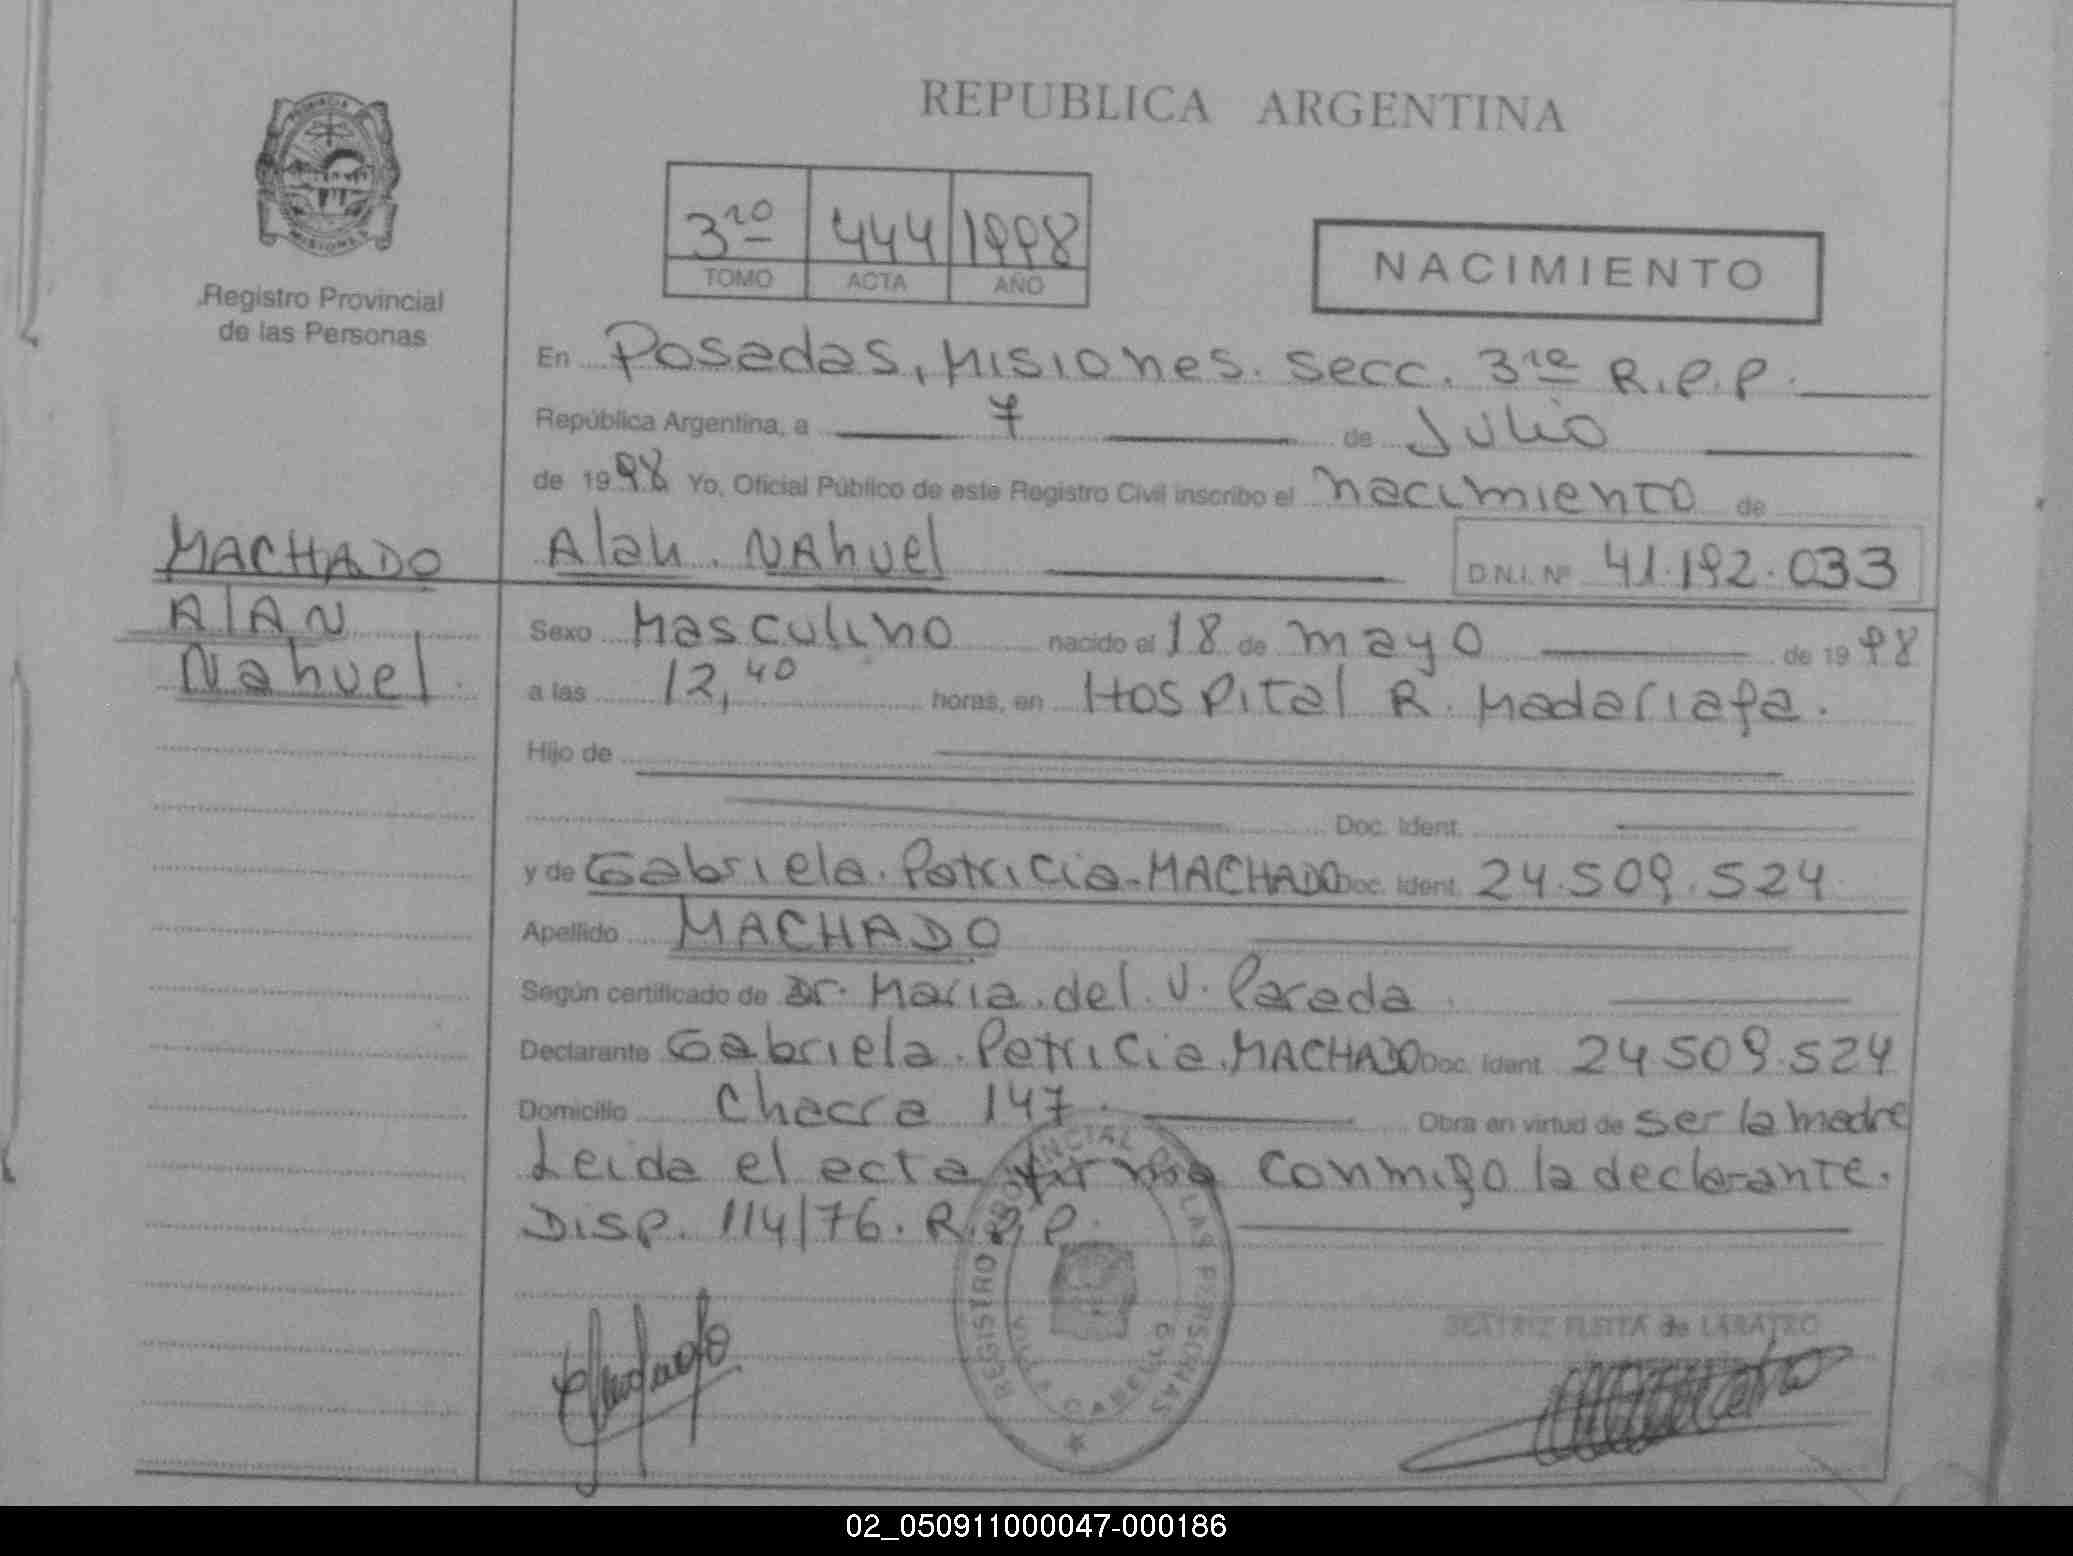 REPUBLICA ARGENTINA
PROVINCIA
MISIONES
Registro Provincial
de las Personas
3ro 444 1998
TOMO ACTA AÑO
NACIMIENTO
En Posadas, Misiones. Secc. 3ra R.P.P.
República Argentina, a 7 de Julio
de 1998 Yo, Oficial Público de este Registro Civil inscribo el nacimiento de
Alan. NAhuel D.N.I. Nº 41.192.033
MACHADO
AlAN
Nahuel.
Sexo Masculino nacido el 18 de mayo de 1998
a las 12,40 horas, en Hospital R. Madariaga.
Hijo de
Doc. Ident.
y de Gabriela. Patricia. MACHADO Doc. Ident. 24.509.524
Apellido MACHADO
Según certificado de Dr. Maria. del. V. Pareda
Declarante Gabriela. Patricia. MACHADO Doc. Ident. 24509.524
Domicilio Chacra 147. Obra en virtud de ser la madre
Leida el acta firma conmigo la declarante.
Disp. 114/76. R.P.P.
REGISTRO PROVINCIAL DE LAS PERSONAS
02_050911000047-000186